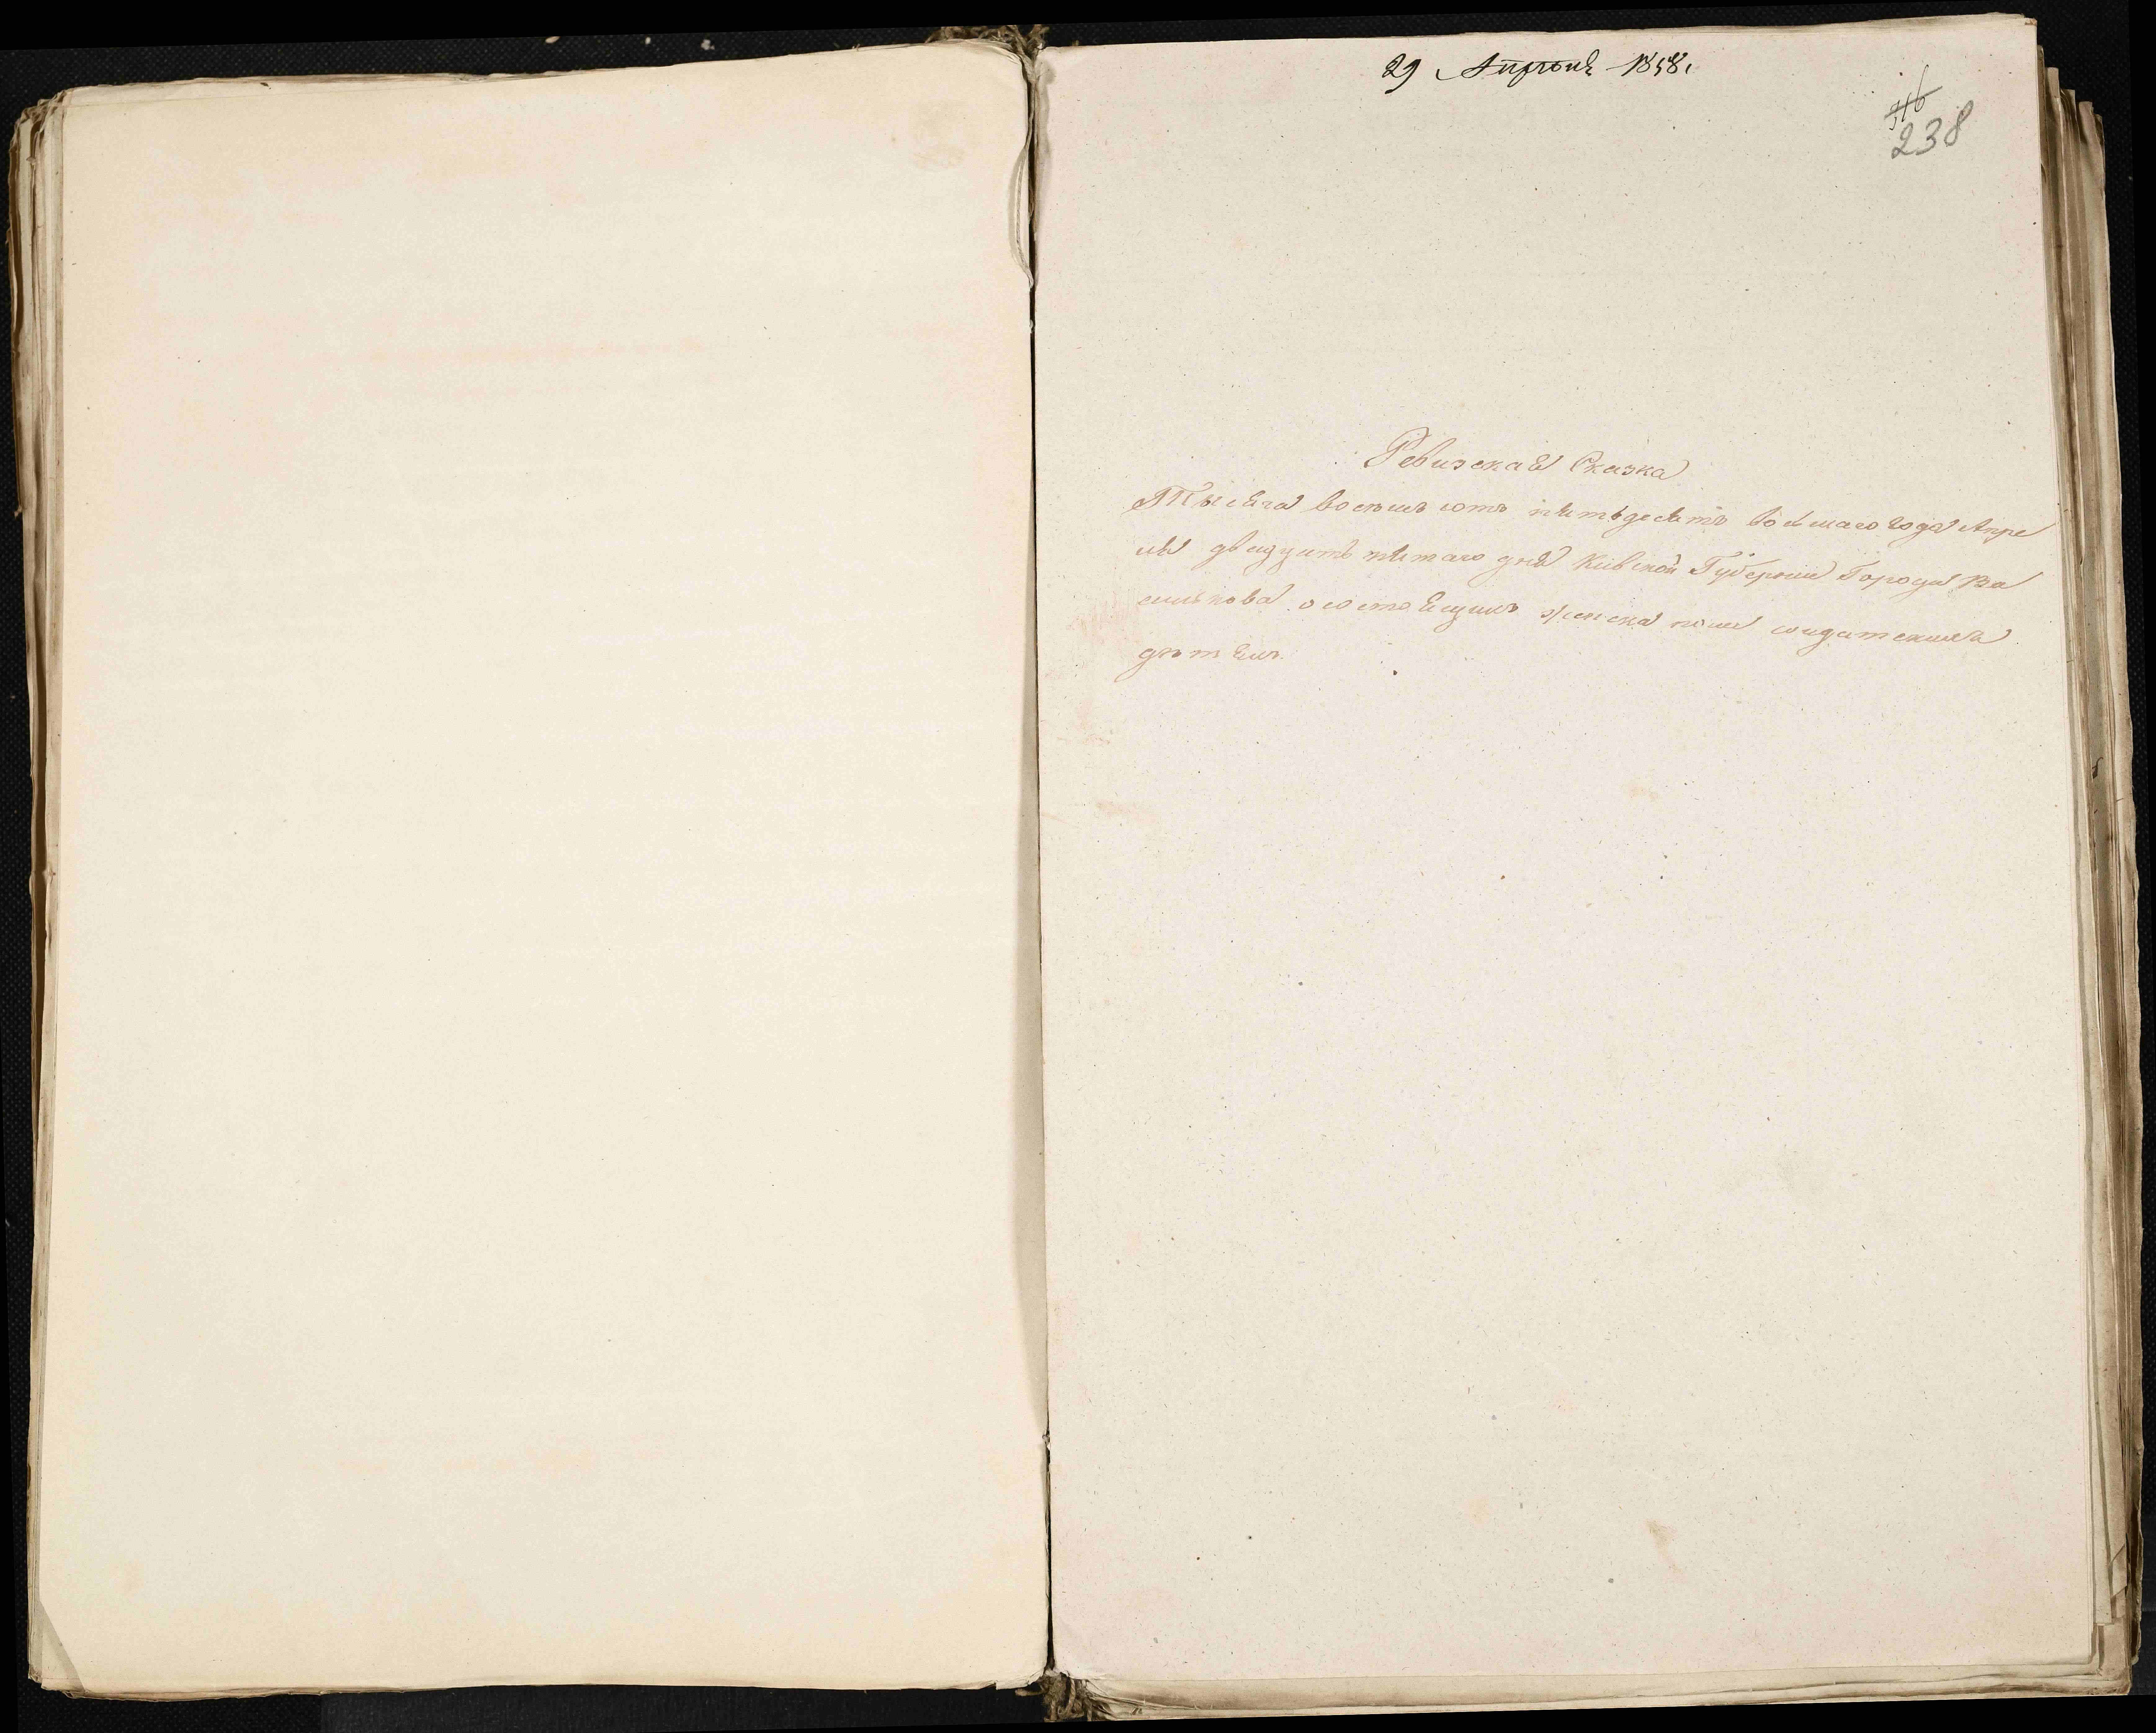 29 Апрѣля 1858.
316
238
Ревизская Сказка
Тысяча восемь сотъ пятьдесятъ восьмаго года Апре
ля двадцать пятаго дня Кіевской Губерніи Города Ва
силькова о состоящихъ женска пола солдатскихъ
дѣтяхъ.